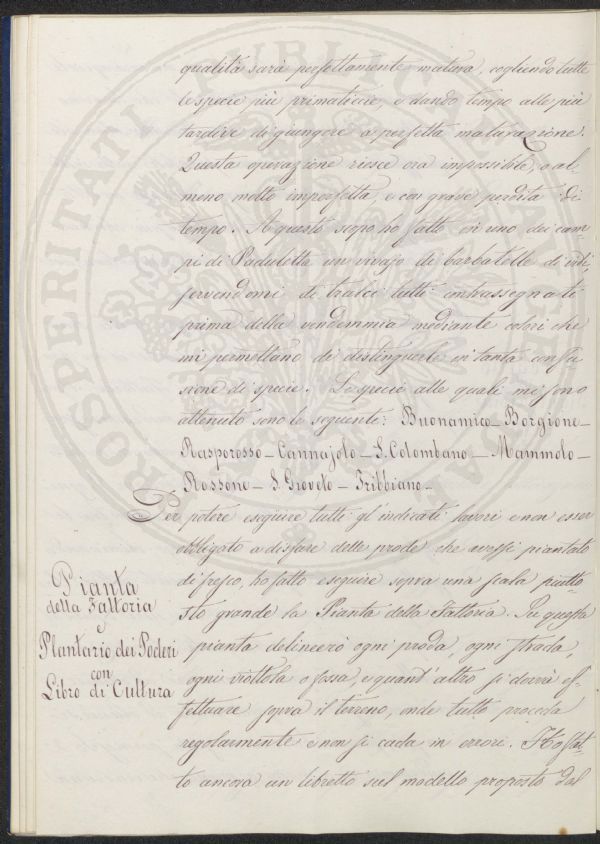 qualità sarà perfettamente matura, cogliendo tutte
le specie più primaticcie, e dando tempo alle più
tardive di giungere a perfetta maturazione.
Questa operazione riesce ora impossibile, o al-
meno molto imperfetta, e con grave perdita di
tempo. A questo scopo ho fatto in uno dei cam-
pi di Paduletta un vivajo di barbatelle di viti,
servendomi di tralci tutti contrassegnati
prima della vendemmia mediante colori che
mi permettano di distinguerle in tanta confu-
sione di specie. Le specie alle quali mi sono
attenuto sono le seguenti: Buonamico _ Borgione _
Rasporosso _ Cannajolo _ S. Colombano _ Mammolo _
Rossone _ S. Gioveto _ Tribbiano _
Per potere eseguire tutti gl'indicati lavori e non esser
obbligato a disfare delle prode che avessi piantato
di fresco, ho fatto eseguire sopra una scala piutto
sto grande la Pianta della Fattoria. In questa
pianta delineerò ogni proda, ogni strada,
ogni viottola o fossa, e quant'altro si dovrà ef-
fettuare sopra il terreno, onde tutto proceda
regolarmente e non si cada in errori. Ho fat-
to ancora un libretto sul modello proposto dal
Pianta
della Fattoria
e
Plantario dei Poderi
con
Libro di Cultura
PROSPERITATI PUBLICAE